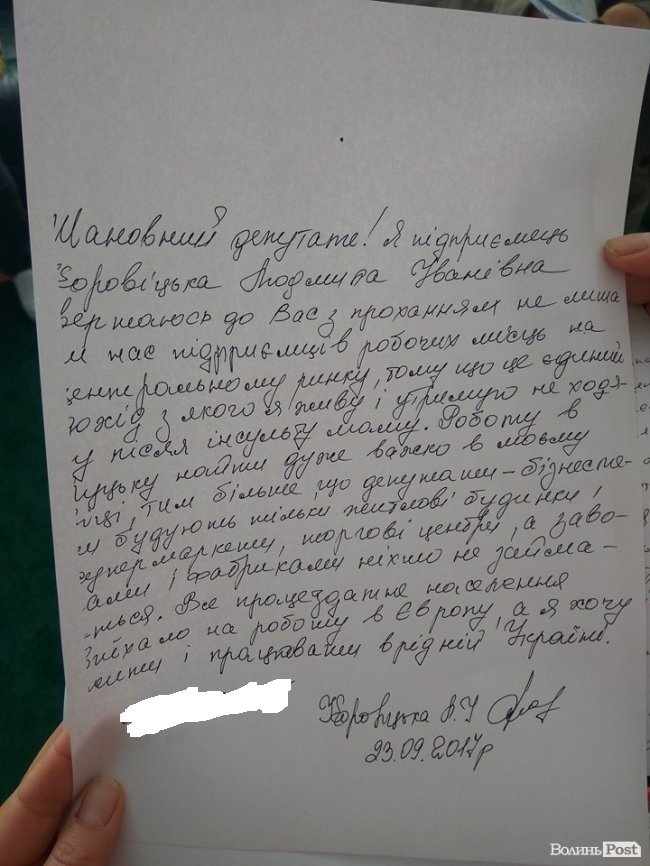 Шановний депутате! Я підприємець
Боровіцька Людмила Іванівна
звертаюсь до Вас з проханням не лиша
и нас підприємців робочих місць на
центральному ринку, тому що це єдиний
дохід з якого я живу і утримую не ходя-
чу після інсульту маму. Роботу в
Луцьку найти дуже важко в моєму
віці, тим більше що депутати - бізнесме-
и будують тільки житлові будинки,
супермаркети, торгові центри, а заво-
ами і фабриками ніхто не займа-
ться. Все працездатне населення
виїхало на роботу в Європу, а я хочу
жити і працювати в рідній Україні.
Боровіцька Л.І
23.09.2017р
ВолиньPost